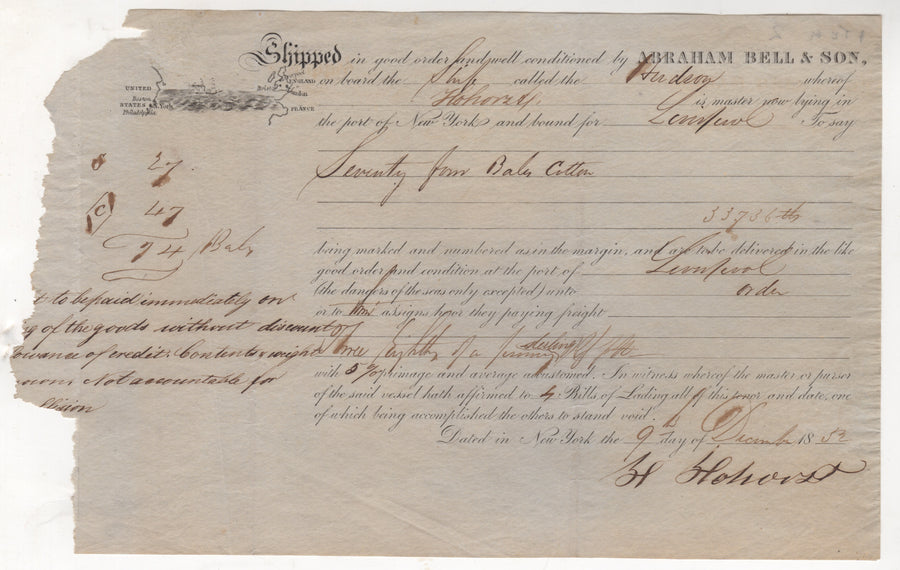 Shipped in good order and well conditioned by ABRAHAM BELL & SON,
on board the Ship called the Hudson whereof
Hohorst is master now lying in
the port of New York and bound for Liverpool To say
UNITED STATES
Boston
N. York
Philadelphia
ENGLAND
Bristol
London
FRANCE
27
Seventy four Bales Cotton
C 47
74 Bales
33736 lbs
being marked and numbered as in the margin, and are to be delivered in the like
good order and condition at the port of Liverpool
(the dangers of the seas only excepted) unto order
or to assigns he or they paying freight
to be paid immediately on
of the goods without discount
or
owance of credit. Contents & weight
three Eighths of a penny sterling
nown Not accountable for
llision
with 5 % primage and average accustomed. In witness whereof the master or purser
of the said vessel hath affirmed to 4 Bills of Lading all of this tenor and date, one
of which being accomplished the others to stand void.
Dated in New York the 9th day of December 1852
H Hohorst